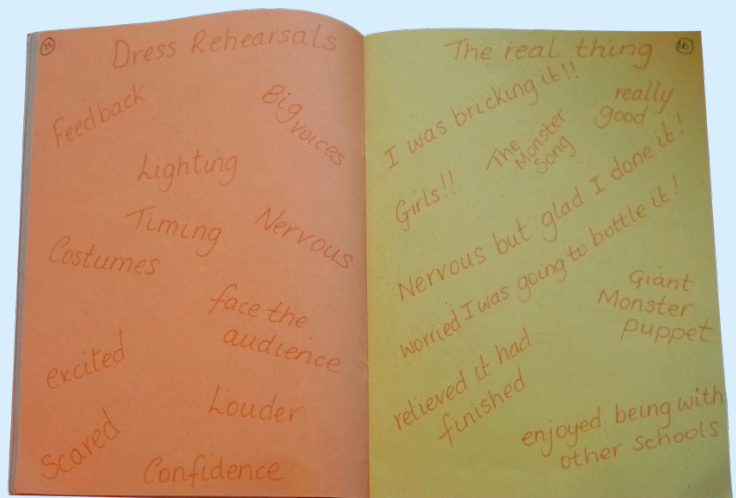 Dress Rehearsals
Feedback
Big
voices
Lighting
Timing
Nervous
Costumes
face the
audience
excited
Louder
Scared
Confidence
The real thing
16
I was bricking it!!
really
good
The
Monster
Song
Girls!!
Nervous but glad I done it!
worried I was going to bottle it!
Giant
Monster
puppet
relieved it had
finished
enjoyed being with
other schools